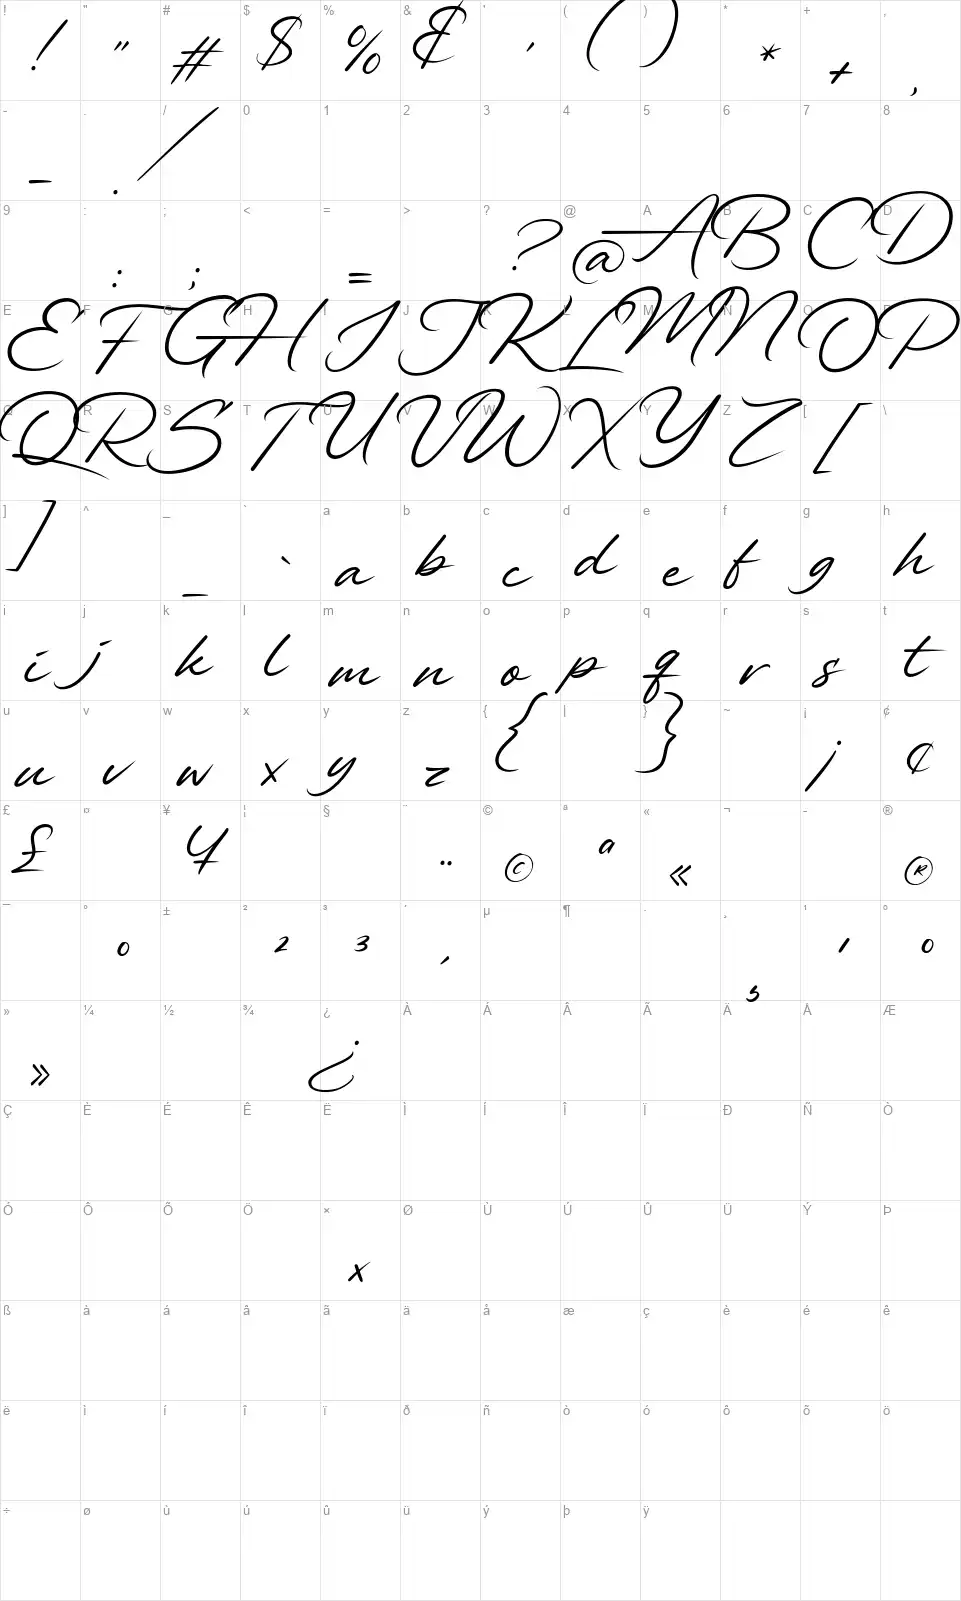 ! " # $ % & ' ( ) * + ,
! " # $ % & ' ( ) * + ,
- . / 0 1 2 3 4 5 6 7 8
- . /
9 : ; < = > ? @ A B C D
: ; = ? @ A B C D
E F G H I J K L M N O P
E F G H I J K L M N O P
Q R S T U V W X Y Z [ \
Q R S T U V W X Y Z [
] ^ _ ` a b c d e f g h
] _ ` a b c d e f g h
i j k l m n o p q r s t
i j k l m n o p q r s t
u v w x y z { | } ~ ¡ ¢
u v w x y z { } ¡ ¢
£ ¤ ¥ ¦ § ¨ © ª « ¬ - ®
£ ¥ ¨ © ª « ®
¯ ° ± ² ³ ´ µ ¶ · ¸ ¹ º
° ² ³ ´ ¸ ¹ º
» ¼ ½ ¾ ¿ À Á Â Ã Ä Å Æ
» ¿
Ç È É Ê Ë Ì Í Î Ï Ð Ñ Ò
Ó Ô Õ Ö × Ø Ù Ú Û Ü Ý Þ
×
ß à á â ã ä å æ ç è é ê
ë ì í î ï ð ñ ò ó ô õ ö
÷ ø ù ú û ü ý þ ÿ